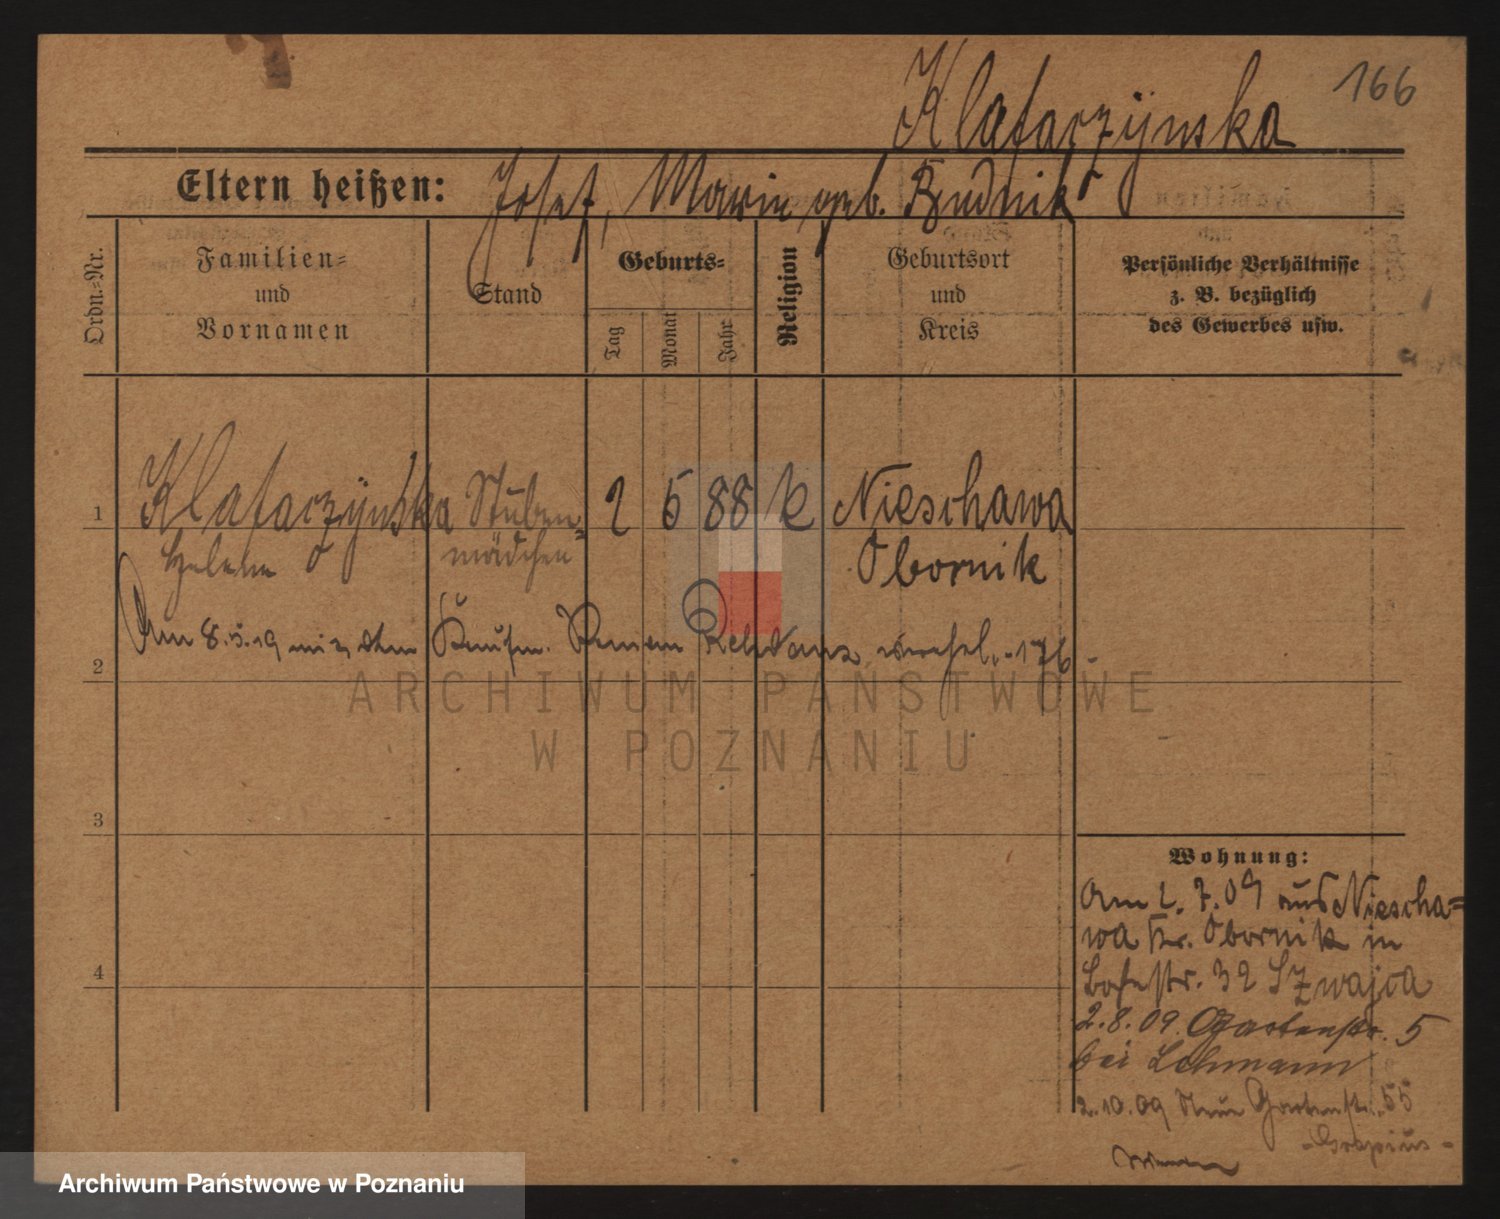 166
Klafaczyńska
Eltern heißen: Josef, Marie geb. Budnik
Ordn.-Nr.
Familien-
und
Vornamen
Stand
Geburts-
Tag
Monat
Jahr
Religion
Geburtsort
und
Kreis
Persönliche Verhältnisse
z. B. bezüglich
des Gewerbes usw.
1 Klafaczyńska Stuben- 2 5 88 k Nieschawa
Helene mädchen Obornik
Am 8.5.19 mit dem Kaufm.
2
ARCHIWUM PAŃSTWOWE
W POZNANIU
3
4
Wohnung:
Am 2.7.09 aus Niescha-
wa Kr. Obornik in
32 Szwajca
2.8.09 Gartenstr. 5
bei Lehmann
2.10.09 Neue Gartenstr. 55
Archiwum Państwowe w Poznaniu